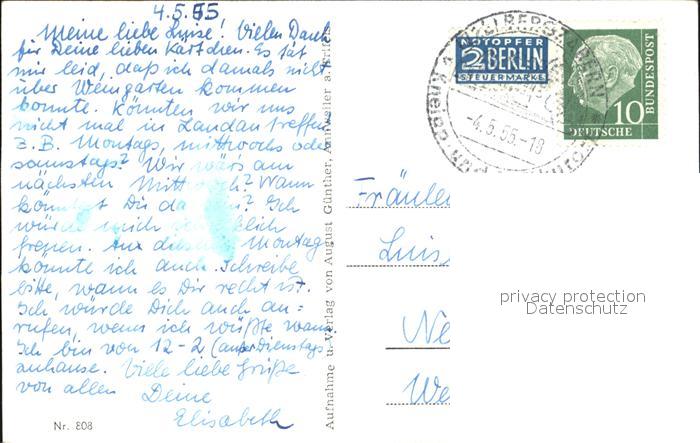 4.5.55
Meine liebe Luise! Vielen Dank
für Deine lieben Kärtchen. Es tat
mir leid, daß ich damals nicht
über Weingarten kommen
konnte. Könnten wir uns
nicht mal in Landau treffen
z.B. Montags, mittwochs oder
samstags? Wie wär's am
nächsten Mittwoch? Wann
könntest Du da sein? Ich
würde mich
freuen. An diesem Montag
könnte ich auch. Schreibe
bitte, wann es Dir recht ist.
Ich würde Dich auch an=
rufen, wenn ich wüßte wann.
Ich bin von 12-2 (außer Dienstag)
zuhause. Viele liebe Grüße
von allen Deine
Elisabeth
Nr. 808
Aufnahme u. Verlag von August Günther, Annweiler a.
NOTOPFER
2 BERLIN
STEUERMARKE
BERGZABERN
-4.5.55.-18
Kneipp
10
DEUTSCHE
BUNDESPOST
Fräulei
Luis
Ne
We
privacy protection
Datenschutz